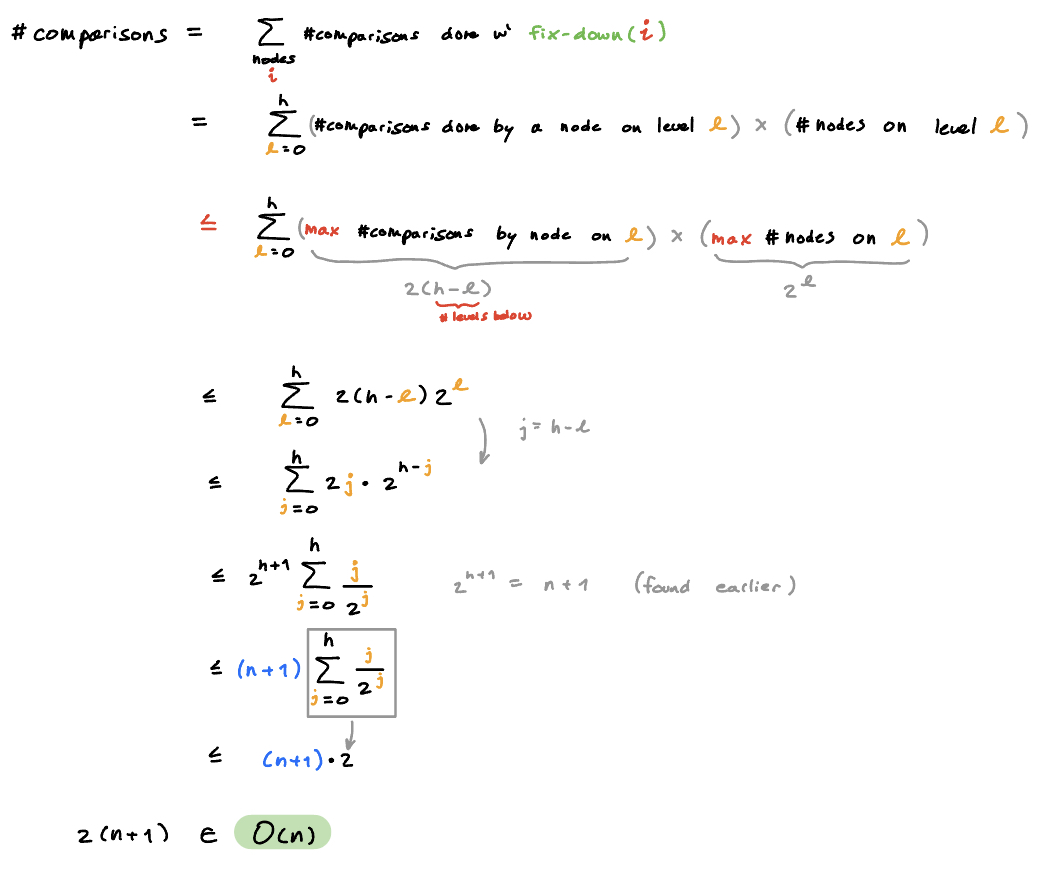 #comparisons = Σ #comparisons done w' fix-down(i)
nodes
i
= h
Σ (#comparisons done by a node on level l) × (#nodes on level l)
l=0
h
≤ Σ (max #comparisons by node on l) × (max #nodes on l)
l=0
2(h-l) 2^l
#levels below
h
≤ Σ 2(h-l) 2^l
l=0
j = h-l
h
≤ Σ 2j · 2^(h-j)
j=0
h
≤ 2^(h+1) Σ j/2^j 2^(h+1) = n+1 (found earlier)
j=0
h
≤ (n+1) Σ j/2^j
j=0
≤ (n+1)·2
2(n+1) ∈ O(n)